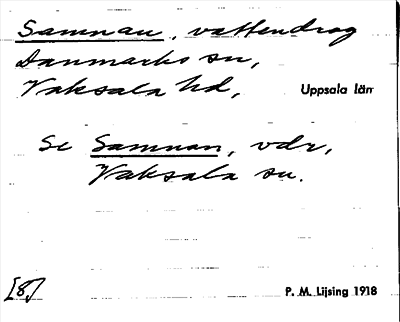 Samnan, vattendrag
Danmarks sn,
Vaksala hd, Uppsala län
Se Samnan, vdr,
Vaksala sn.
[8] P. M. Lijsing 1918